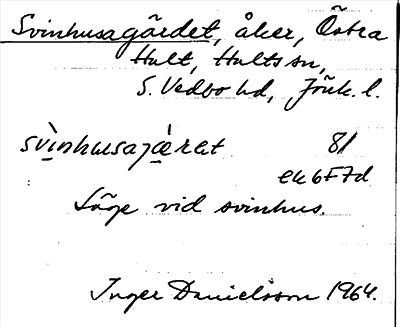 Svinhusagärdet, åker, Östra
Hult, Hults sn,
S. Vedbo hd, Jönk. l.
svìnhusajæ̀rat 81
ek 6F7d
Låge vid svinhus.
Inger Danielsson 1964.